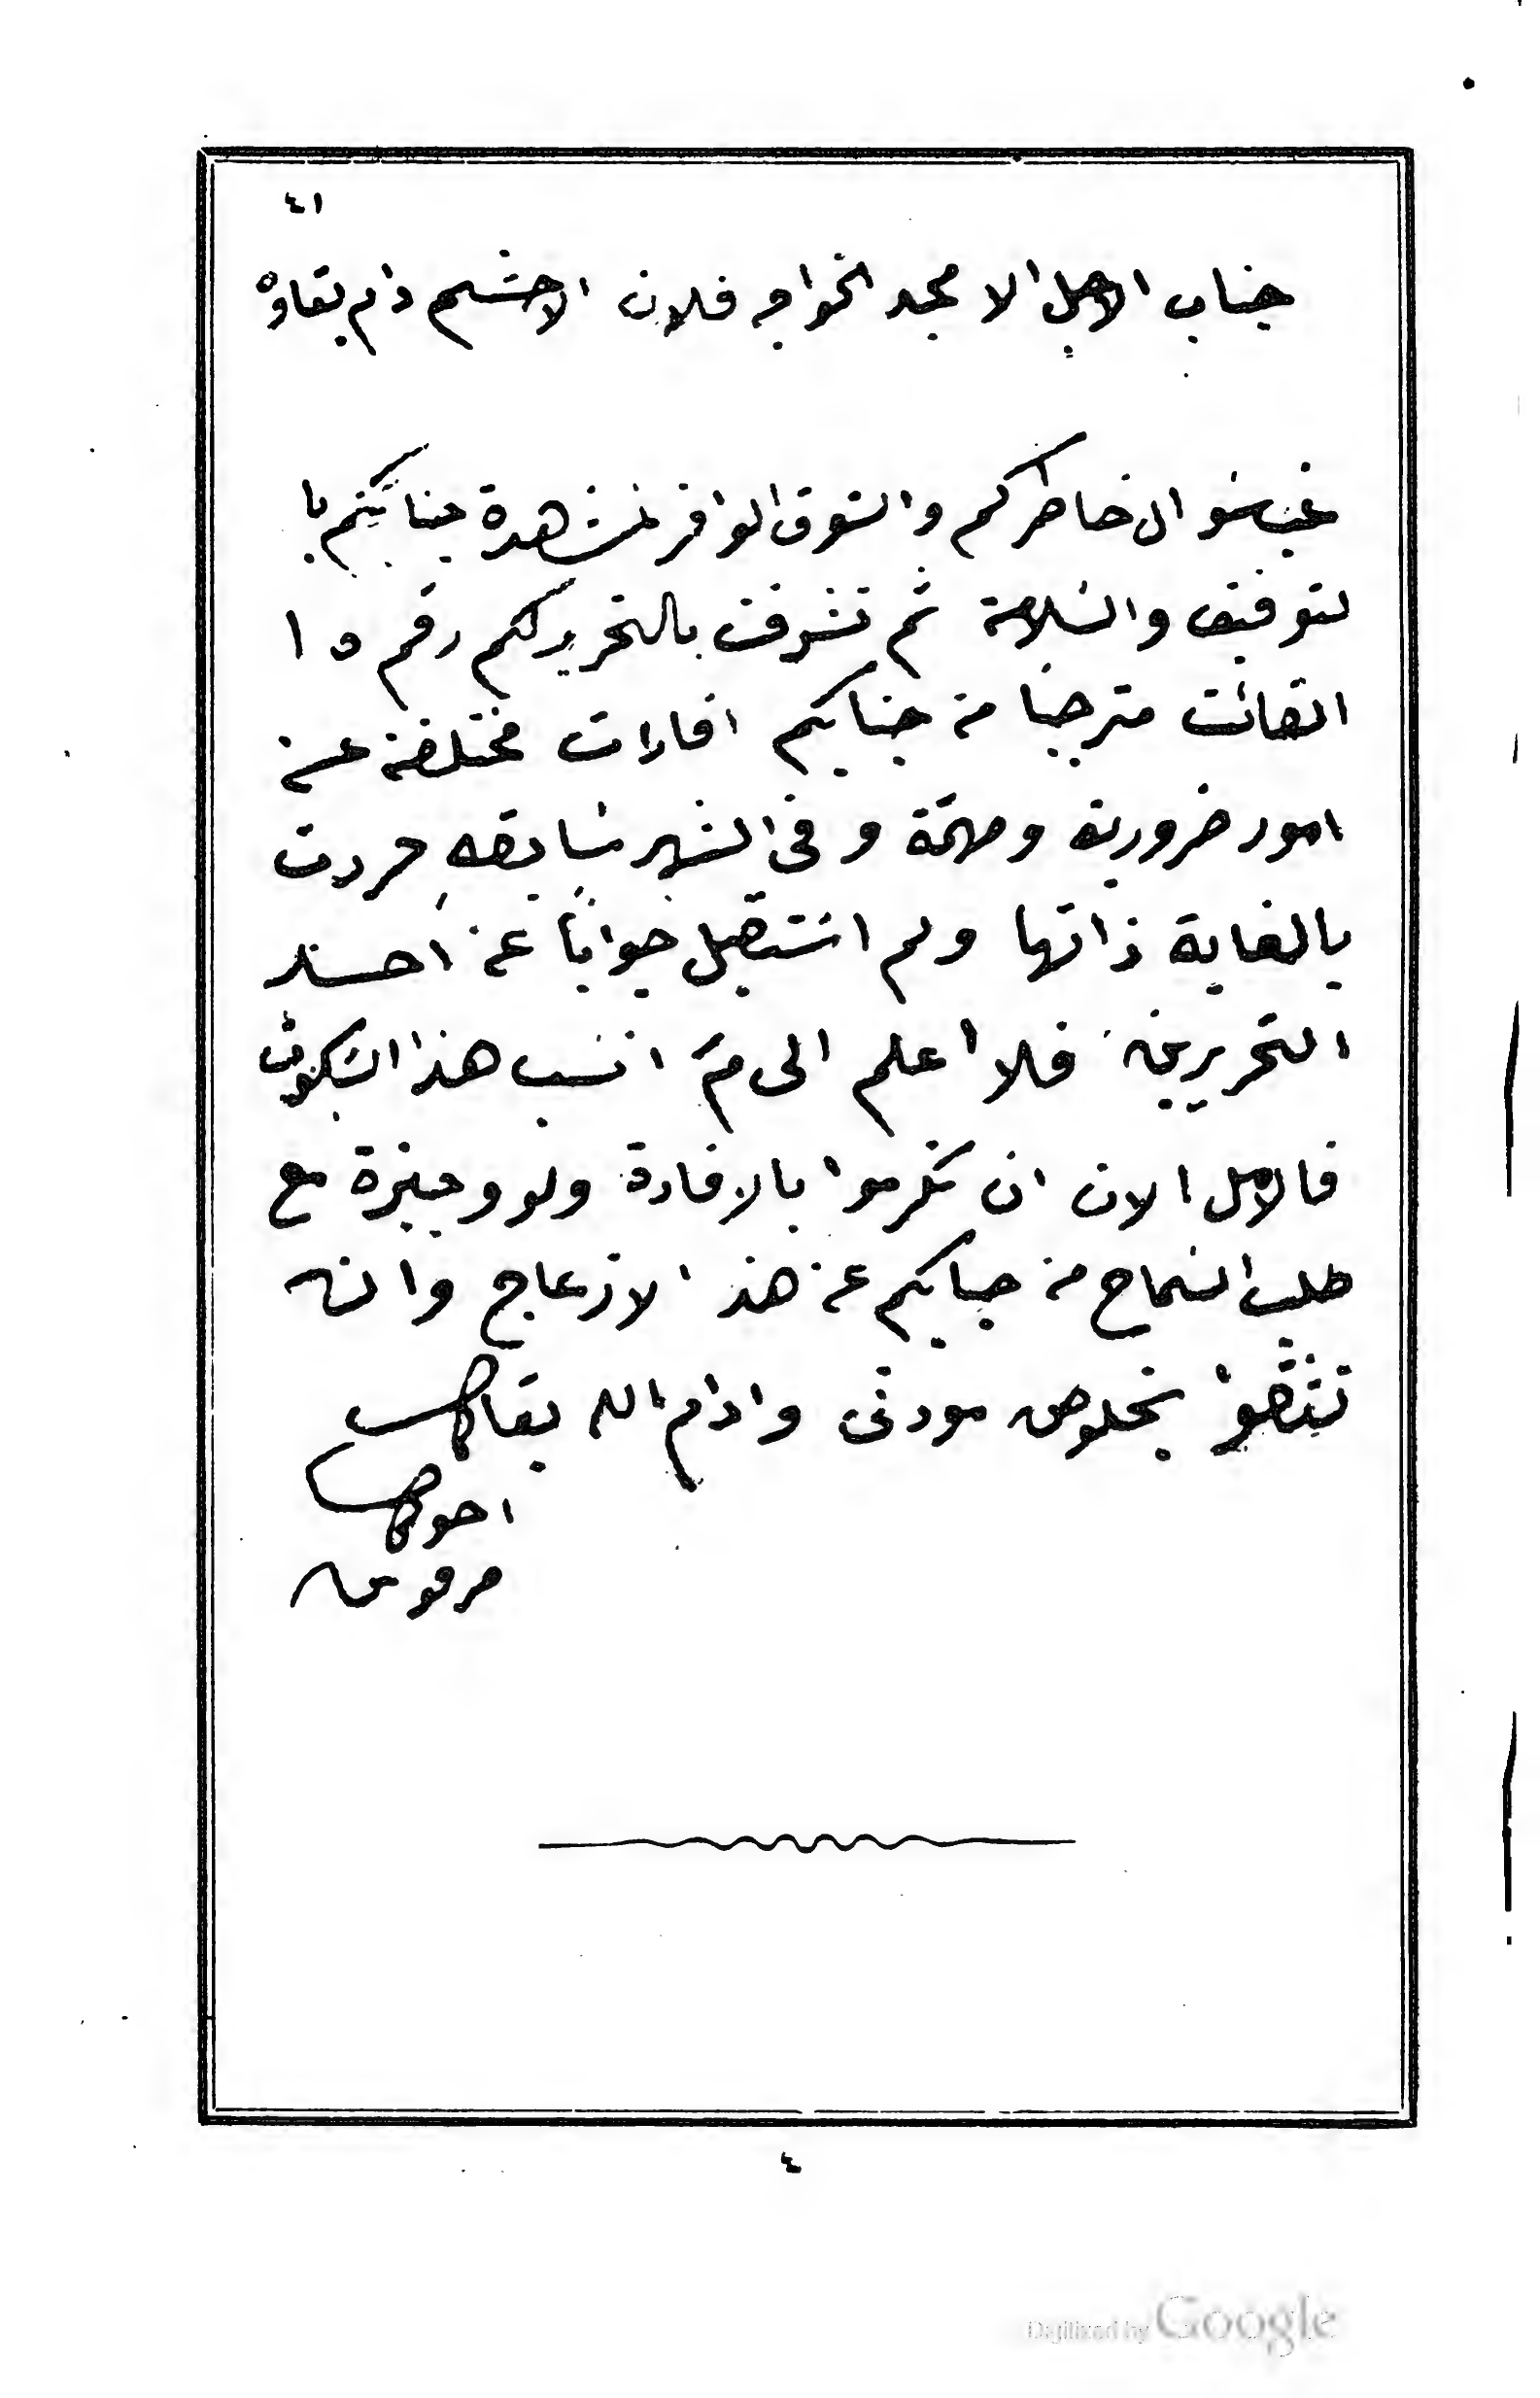 ٤١
جناب الاجل الامجد الخواجه فلان الاحتشم دام بقاوه
غب سوال خاطركم والشوق الوافر لمشهدة جنابكم با
لتوفيق والسلامة ثم تشرفت بالتحريركم رقم ١٥
الفائت مترجيا من جنابكم افادات مختلفة عن
امور ضروريه ومهمة وفي الشهر سابقه حررت
بالغاية ذاتها ولم استقبل جواباً عن احسد
التحريرين فلا اعلم الى مَ انسب هذا السكوت
فالامل الان ان تكرموا بالافادة ولو وجيزة مع
طلب السماح من جنابكم عن هذ الازعاج وان
تثقوا بخلوص مودتي وادام الله بقاكم
اخوكم
مرقوس
٤
Digitized by Google